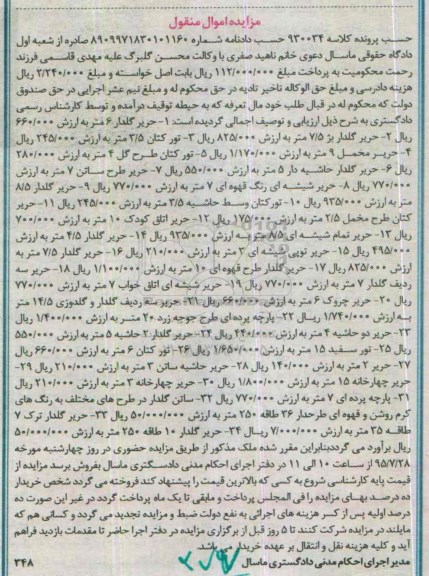 مزایده اموال منقول
حسب پرونده کلاسه ۹۳۰۰۳۴ حسب دادنامه شماره ۸۹۰۹۹۷۱۸۳۰۱۰۱۱۶۰ صادره از شعبه اول
دادگاه حقوقی ماسال دعوی خانم ناهید صفری با وکالت محسن گلبرگ علیه مهدی قاسمی فرزند
رحمت محکومیت به پرداخت مبلغ ۱۱۲/۰۰۰/۰۰۰ ریال بابت اصل خواسته و مبلغ ۲/۲۴۰/۰۰۰ ریال
هزینه دادرسی و مبلغ حق الوکاله تاخیر تادیه در حق محکوم له و مبلغ نیم عشر اجرایی در حق صندوق
دولت که محکوم له در قبال طلب خود مال تعرفه که به حیطه توقیف درآمده و توسط کارشناس رسمی
دادگستری به شرح ذیل ارزیابی و توصیف اجمالی گردیده است: ۱- حریر گلدار ۶ متر به ارزش ۶۶۰/۰۰۰
ریال ۲- حریر گلدار بژ ۷/۵ متر به ارزش ۸۲۵/۰۰۰ ریال ۳- تور کتان ۳/۵ متر به ارزش ۲۴۵/۰۰۰ ریال
۴- حریر مخمل ۹ متر به ارزش ۱/۱۷۰/۰۰۰ ریال ۵- تور کتان طرح گل ۴ متر به ارزش ۲۸۰/۰۰۰
ریال ۶- حریر گلدار حاشیه دار ۵ متر به ارزش ۵۵۰/۰۰۰ ریال ۷- حریر طرح ساتن ۷ متر به ارزش
۷۷۰/۰۰۰ ریال ۸- حریر شیشه ای رنگ قهوه ای ۷ متر به ارزش ۷۷۰/۰۰۰ ریال ۹- حریر گلدار ۸/۵
متر به ارزش ۹۳۵/۰۰۰ ریال ۱۰- تورکتان وسط حاشیه ۳/۵ متر به ارزش ۲۴۵/۰۰۰ ریال ۱۱- حریر
کتان طرح مخمل ۲/۵ متر به ارزش ۱۷۵/۰۰۰ ریال ۱۲- حریر اتاق کودک ۱۰ متر به ارزش ۷۰۰/۰۰۰
ریال ۱۳- حریر تمام شیشه ای ۸/۵ متر به ارزش ۹۳۵/۰۰۰ ریال ۱۴- حریر گلدار ۴/۵ متر به ارزش
۴۹۵/۰۰۰ ریال ۱۵- حریر توپی شیشه ای ۳ متر به ارزش ۲۱۰/۰۰۰ ریال ۱۶- حریر گلدار ۷/۵ متر به
ارزش ۸۲۵/۰۰۰ ریال ۱۷- حریر گلدار طرح قهوه ای ۱۰ متر به ارزش ۱/۱۰۰/۰۰۰ ریال ۱۸- حریر سه
ردیف گلدار ۷ متر به ارزش ۷۷۰/۰۰۰ ریال ۱۹- حریر شیشه ای اتاق خواب ۷ متر به ارزش ۷۷۰/۰۰۰
ریال ۲۰- حریر چروک ۶ متر به ارزش ۶۶۰/۰۰۰ ریال ۲۱- حریر سه ردیف گلدار و گلدوزی ۱۴/۵ متر
به ارزش ۱/۷۴۰/۰۰۰ ریال ۲۲- پارچه پرده ای طرح جوجه زرد ۲۰ متر به ارزش ۱/۴۰۰/۰۰۰ ریال
۲۳- حریر دو حاشیه ۴ متر به ارزش ۴۴۰/۰۰۰ ریال ۲۴- حریر گلدار ۲ حاشیه ۵ متر به ارزش ۵۵۰/۰۰۰
ریال ۲۵- تور سفید ۱۵ متر به ارزش ۱/۶۵۰/۰۰۰ ریال ۲۶- تور کتان ۶ متر به ارزش ۶۶۰/۰۰۰ ریال
۲۷- حریر ۲ متر به ارزش ۱۴۰/۰۰۰ ریال ۲۸- حریر حاشیه ساتن ۳ متر به ارزش ۲۱۰/۰۰۰ ریال ۲۹-
حریر چهارخانه ۱۵ متر به ارزش ۱/۸۰۰/۰۰۰ ریال ۳۰- حریر چهارخانه ۳ متر به ارزش ۲۱۰/۰۰۰ ریال
۳۱- پارچه پرده ای ۷ متر به ارزش ۷۷۰/۰۰۰ ریال ۳۲- ساتن گلدار در طرح های مختلف به رنگ های
کرم روشن و قهوه ای طرحدار ۳۶ طاقه ۲۵۰ متر به ارزش ۵۰/۰۰۰/۰۰۰ ریال ۳۳- حریر گلدار ترک ۷
طاقه ۳۵ متر به ارزش ۷/۰۰۰/۰۰۰ ریال ۳۴- حریر گلدار ۱۰ طاقه ۲۵۰ متر به ارزش ۵۰/۰۰۰/۰۰۰
ریال برآورد می گردد بنابراین مقرر شده ملک مذکور از طریق مزایده حضوری در روز چهارشنبه مورخه
۹۵/۷/۲۸ از ساعت ۱۰ الی ۱۱ در دفتر اجرای احکام مدنی دادگستری ماسال بفروش برسد مزایده از
قیمت پایه کارشناسی شروع به کسی که بالاترین قیمت را پیشنهاد کند فروخته می گردد شخص خریدار
ده درصد بهای مزایده را فی المجلس پرداخت و مابقی تا یک ماه پرداخت گردد در غیر این صورت ده
درصد اولیه پس از کسر هزینه های اجرائی به نفع دولت ضبط و مزایده تجدید می گردد و کسانی هم که
مایلند در مزایده شرکت کنند تا ۵ روز قبل از برگزاری مزایده در دفتر اجرا حاضر تا مقدمات بازدید فراهم
آید و کلیه هزینه نقل و انتقال بر عهده خریدار می باشد.
مدیر اجرای احکام مدنی دادگستری ماسال
۳۴۸